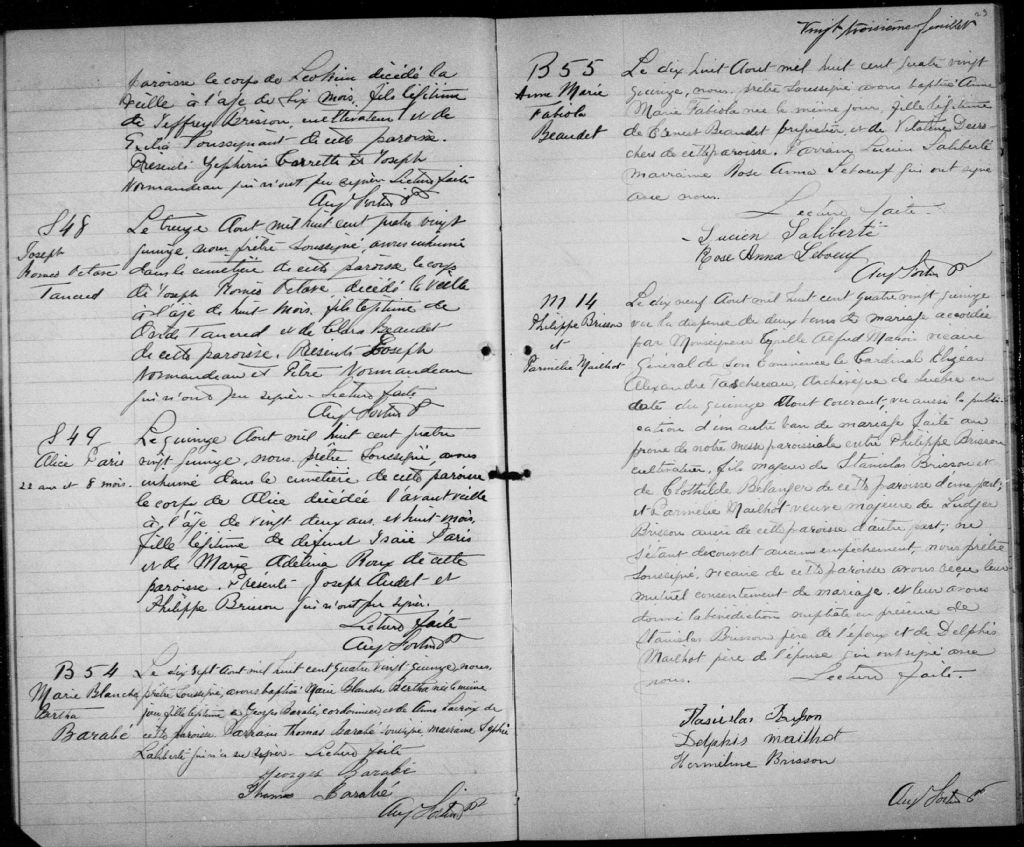 paroisse le corps de décédé la
veille à l'age de six mois, fils légitime
de Jeffrey Brisson, cultivateur et de
Toussignant de cette paroisse.
Présents Zepherin Barrette et Joseph
Normandeau qui n'ont pu signer. Lecture faite
Aug Fortin Ptre
S 48
Joseph
Romeo Octave
Tancred
Le treize Aout mil huit cent quatre vingt
quinze, nous prêtre soussigné, avons inhumé
dans le cimetière de cette paroisse le corps
de Joseph Romeo Octave décédé la veille
à l'âge de huit mois, fils légitime de
Ovide Tancred et de Clara Beaudet
de cette paroisse. Présents Joseph
Normandeau et Pitre Normandeau
qui n'ont pu signer. Lecture faite
Aug Fortin Ptre
S 49
Alice Paris
22 ans et 8 mois.
Le quinze Aout mil huit cent quatre
vingt quinze, nous prêtre soussigné, avons
inhumé dans le cimetière de cette paroisse
le corps de Alice décédée l'avant veille
à l'âge de vingt deux ans, et huit mois,
fille légitime de défunt Isaie Paris
et de Marie Adelina Roux de cette
paroisse. Présents Joseph Audet et
Philippe Brisson qui n'ont pu signer.
Lecture faite
Aug Fortin Ptre
B 54
Marie Blanche
Bertha
Barabé
Le dix sept Aout mil huit cent quatre vingt quinze, nous,
prêtre soussigné, avons baptisé Marie Blanche Bertha née le même
jour, fille légitime de Georges Barabé, cordonnier et de Anna Lacroix de
cette paroisse. Parrain Thomas Barabé soussigné, marraine Sophie
Laliberté qui n'a su signer. Lecture faite
Georges Barabé
Thomas Barabé
Aug Fortin Ptre
23
Vingt troisième feuillet
B 55
Anne Marie
Fabiola
Beaudet
Le dix huit Aout mil huit cent quatre vingt
quinze, nous, prêtre soussigné avons baptisé Anne
Marie Fabiola née le même jour, fille légitime
de Ernest Beaudet, et de Vitaline Desro-
chers de cette paroisse. Parrain Lucien Laliberté
marraine Rose Anna Leboeuf qui ont signé
avec nous.
Lecture faite.
Lucien Laliberté
Rose Anna Leboeuf
Aug Fortin Ptre
M 14
Philippe Brisson
et
Parmelie Mailhot
Le dix neuf Aout mil huit cent quatre vingt quinze
vu la dispense de deux bans de mariage accordée
par Monseigneur Cyrille Alfred Marois vicaire
Général de Son Eminence le Cardinal Elzéar
Alexandre Taschereau, Archevêque de Québec en
date du quinze Aout courant; vu aussi la publi-
cation d'un autre ban de mariage faite au
prone de notre messe paroissiale entre Philippe Brisson
cultivateur, fils majeur de Stanislas Brisson et
de Clothilde Belanger de cette paroisse d'une part;
et Parmelie Mailhot veuve majeure de Ludger
Brisson aussi de cette paroisse d'autre part; ne
s'étant découvert aucun empêchement, nous prêtre
soussigné, vicaire de cette paroisse avons reçu leur
mutuel consentement de mariage, et leur avons
donné la bénédiction nuptiale en présence de
Stanislas Brisson père de l'époux et de Delphis
Mailhot père de l'épouse qui ont signé avec
nous. Lecture faite.
Stasislas Brisson
Delphis Mailhot
Hermeline Brisson
Aug Fortin Ptre